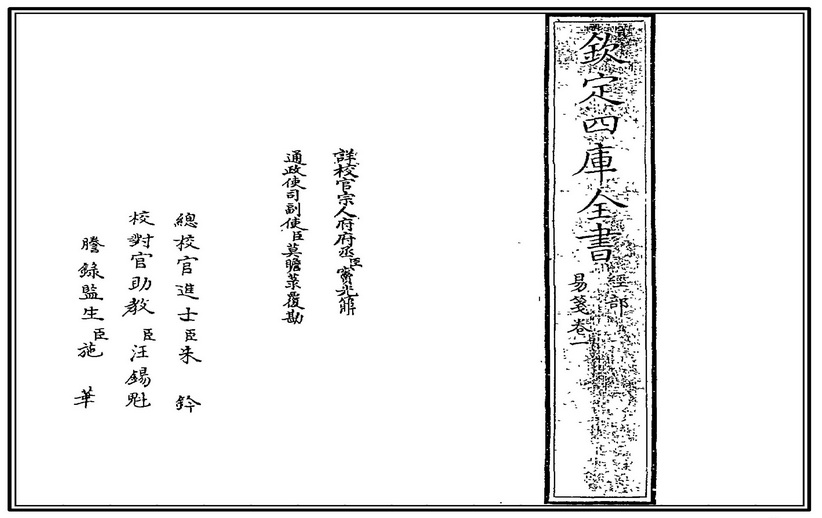 欽定四庫全書
經部
易箋卷一
詳校官宗人府府丞臣竇光鼐
通政使司副使臣莫瞻菉覆勘
總校官進士臣朱鈐
校對官助教臣汪錫魁
謄錄監生臣施華